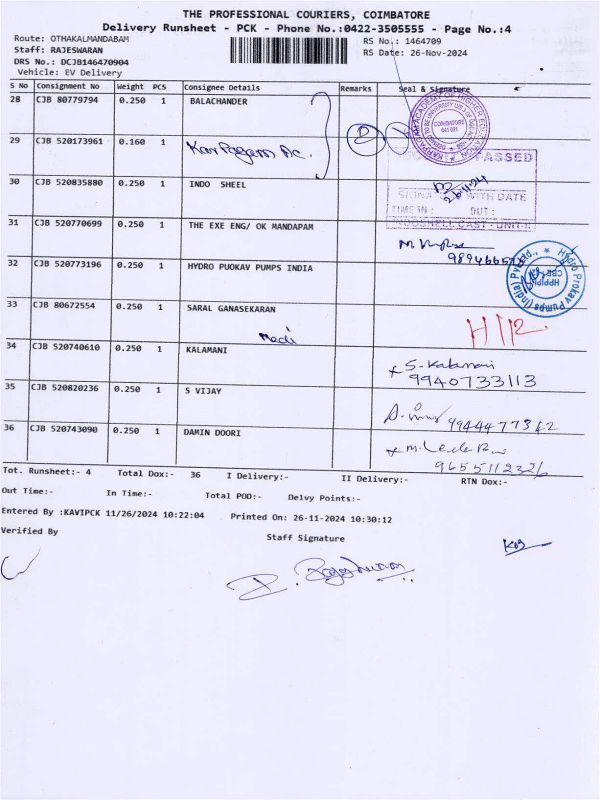 THE PROFESSIONAL COURIERS, COIMBATORE
Delivery Runsheet - PCK - Phone No.:0422-3505555 - Page No.:4
Route: OTHAKALMANDABAM
RS No.: 1464709
Staff: RAJESWARAN
RS Date: 26-Nov-2024
DRS No.: DCJB146470904
Vehicle: EV Delivery
S No Consignment No Weight PCS Consignee Details Remarks Seal & Signature
28 CJB 80779794 0.250 1 BALACHANDER
KARPAGAM ACADEMY OF HIGHER EDUCATION
COIMBATORE
641 021
29 CJB 520173961 0.160 1 Karpagam AC. 2
PASSED
30 CJB 520835880 0.250 1 INDO SHEEL
26.11.24
WITH DATE
TIME IN : OUT :
INDOSHELL CAST - UNIT-I
31 CJB 520770699 0.250 1 THE EXE ENG/ OK MANDAPAM
32 CJB 520773196 0.250 1 HYDRO PUOKAV PUMPS INDIA
Hydro Prokav Pumps (India) Pvt. Ltd.,
33 CJB 80672554 0.250 1 SARAL GANASEKARAN
34 CJB 520740610 0.250 1 KALAMANI
S. Kalamani
9940733113
35 CJB 520820236 0.250 1 S VIJAY
36 CJB 520743090 0.250 1 DAMIN DOORI
Tot. Runsheet:- 4 Total Dox:- 36 I Delivery:- II Delivery:- RTN Dox:-
Out Time:- In Time:- Total POD:- Delvy Points:-
Entered By :KAVIPCK 11/26/2024 10:22:04 Printed On: 26-11-2024 10:30:12
Verified By Staff Signature